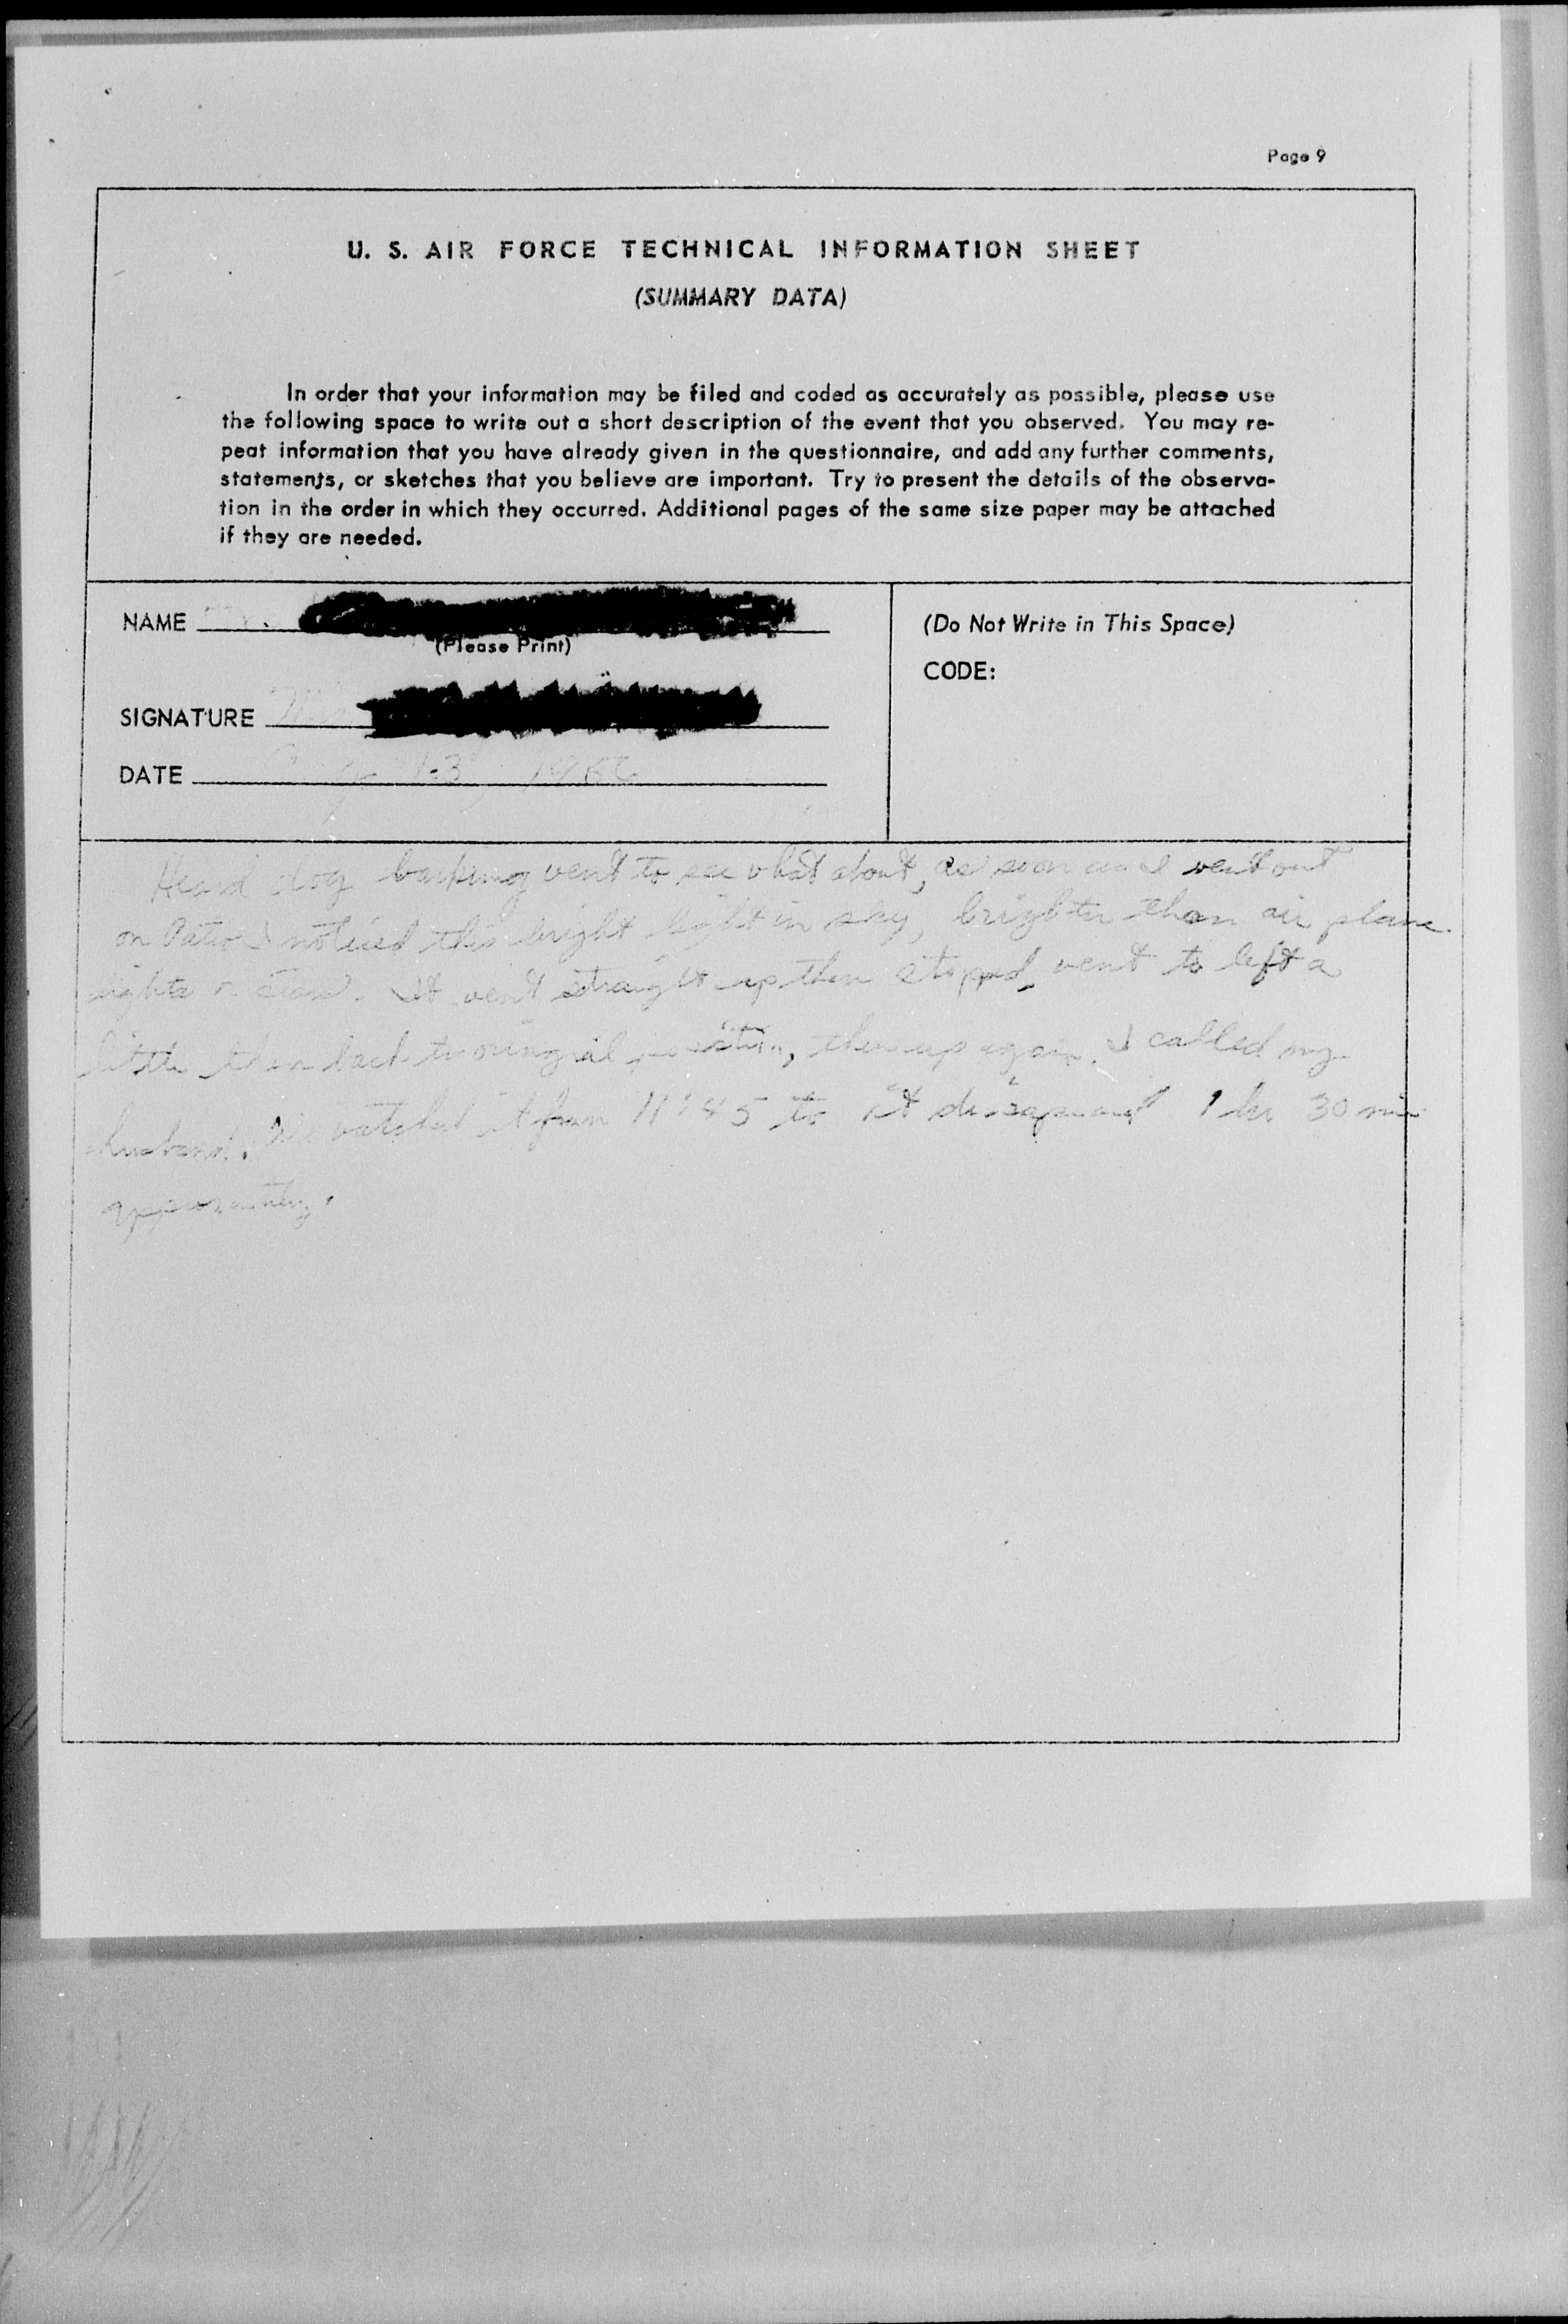 Page 9
U. S. AIR FORCE TECHNICAL INFORMATION SHEET
(SUMMARY DATA)
In order that your information may be filed and coded as accurately as possible, please use
the following space to write out a short description of the event that you observed. You may re-
peat information that you have already given in the questionnaire, and add any further comments,
statements, or sketches that you believe are important. Try to present the details of the observa-
tion in the order in which they occurred. Additional pages of the same size paper may be attached
if they are needed.
NAME
(Please Print)
SIGNATURE
DATE 13, 1956
(Do Not Write in This Space)
CODE:
Heard dog barking went to see what about, as soon as I went out
on Patio I noticed this bright light in sky, brighter than air plane
lights. It went straight up then stopped, went to left a
little then back to oringial position, then up again. I called my
husband. We watched it from 11:45 to it 1 hr 30 min